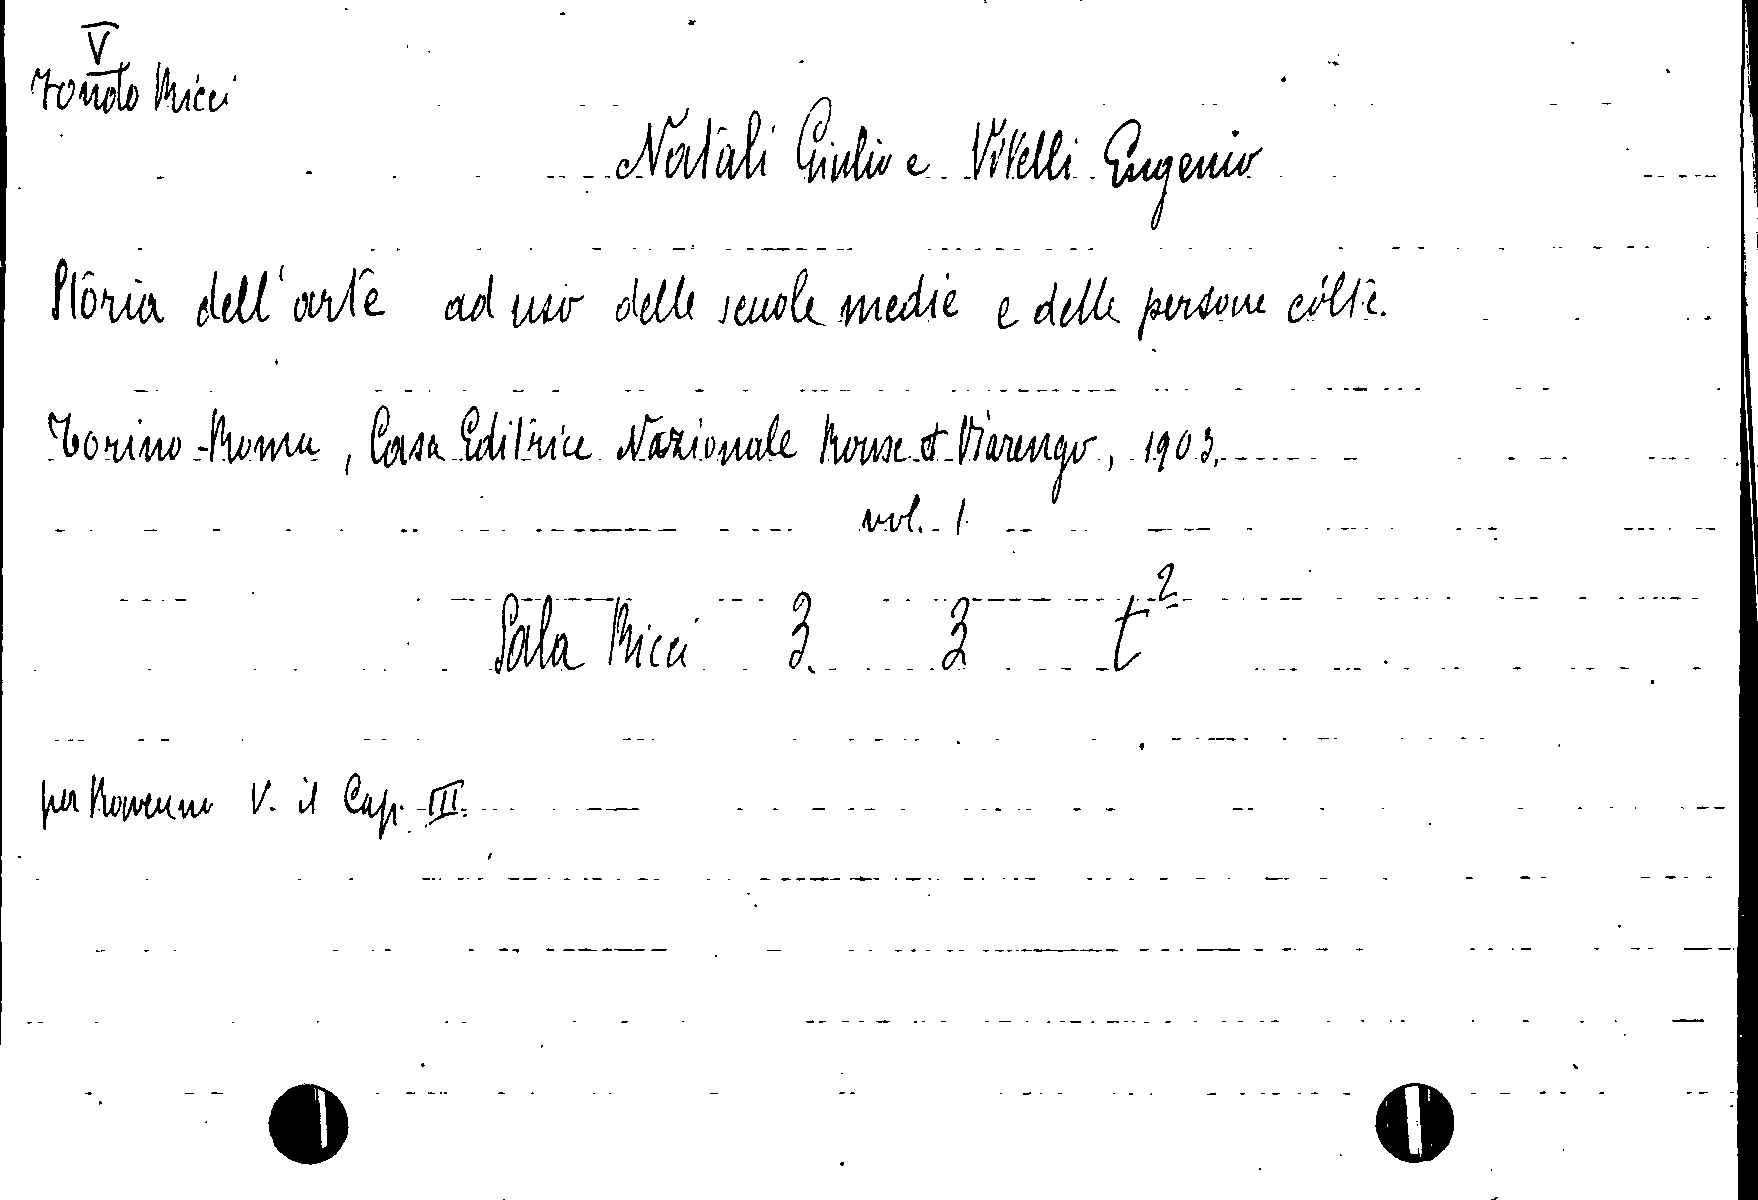 V
Fondo Ricci
Natali Giulio e Vitelli Eugenio
Storia dell'arte ad uso delle scuole medie e delle persone cólte.
Torino-Roma, Casa Editrice Nazionale Roux e Viarengo, 1903.
vol. 1
Sala Ricci 3 3 t²
per Ravenna V. il Cap. III.